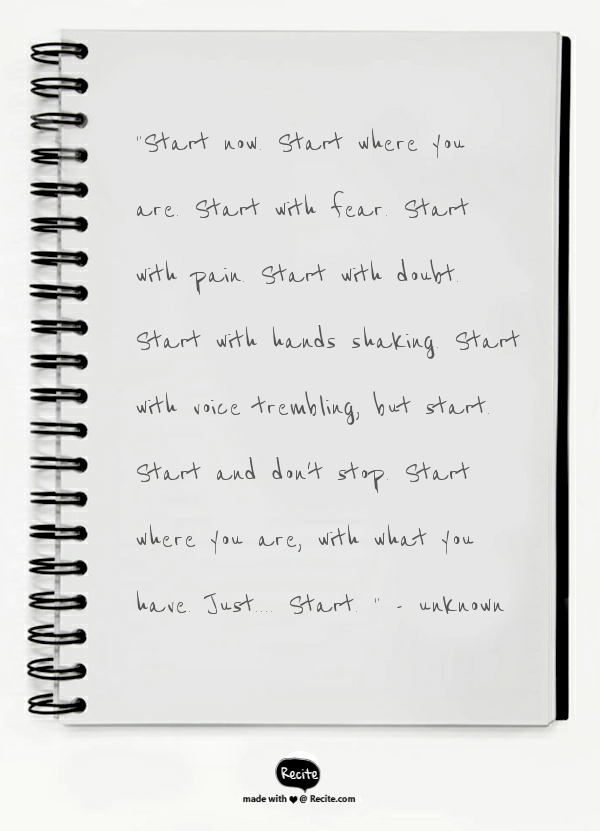 "Start now. Start where you
are. Start with fear. Start
with pain. Start with doubt.
Start with hands shaking. Start
with voice trembling, but start.
Start and don't stop. Start
where you are, with what you
have. Just.... Start. " - unknown
Recite
made with ❤ @ Recite.com